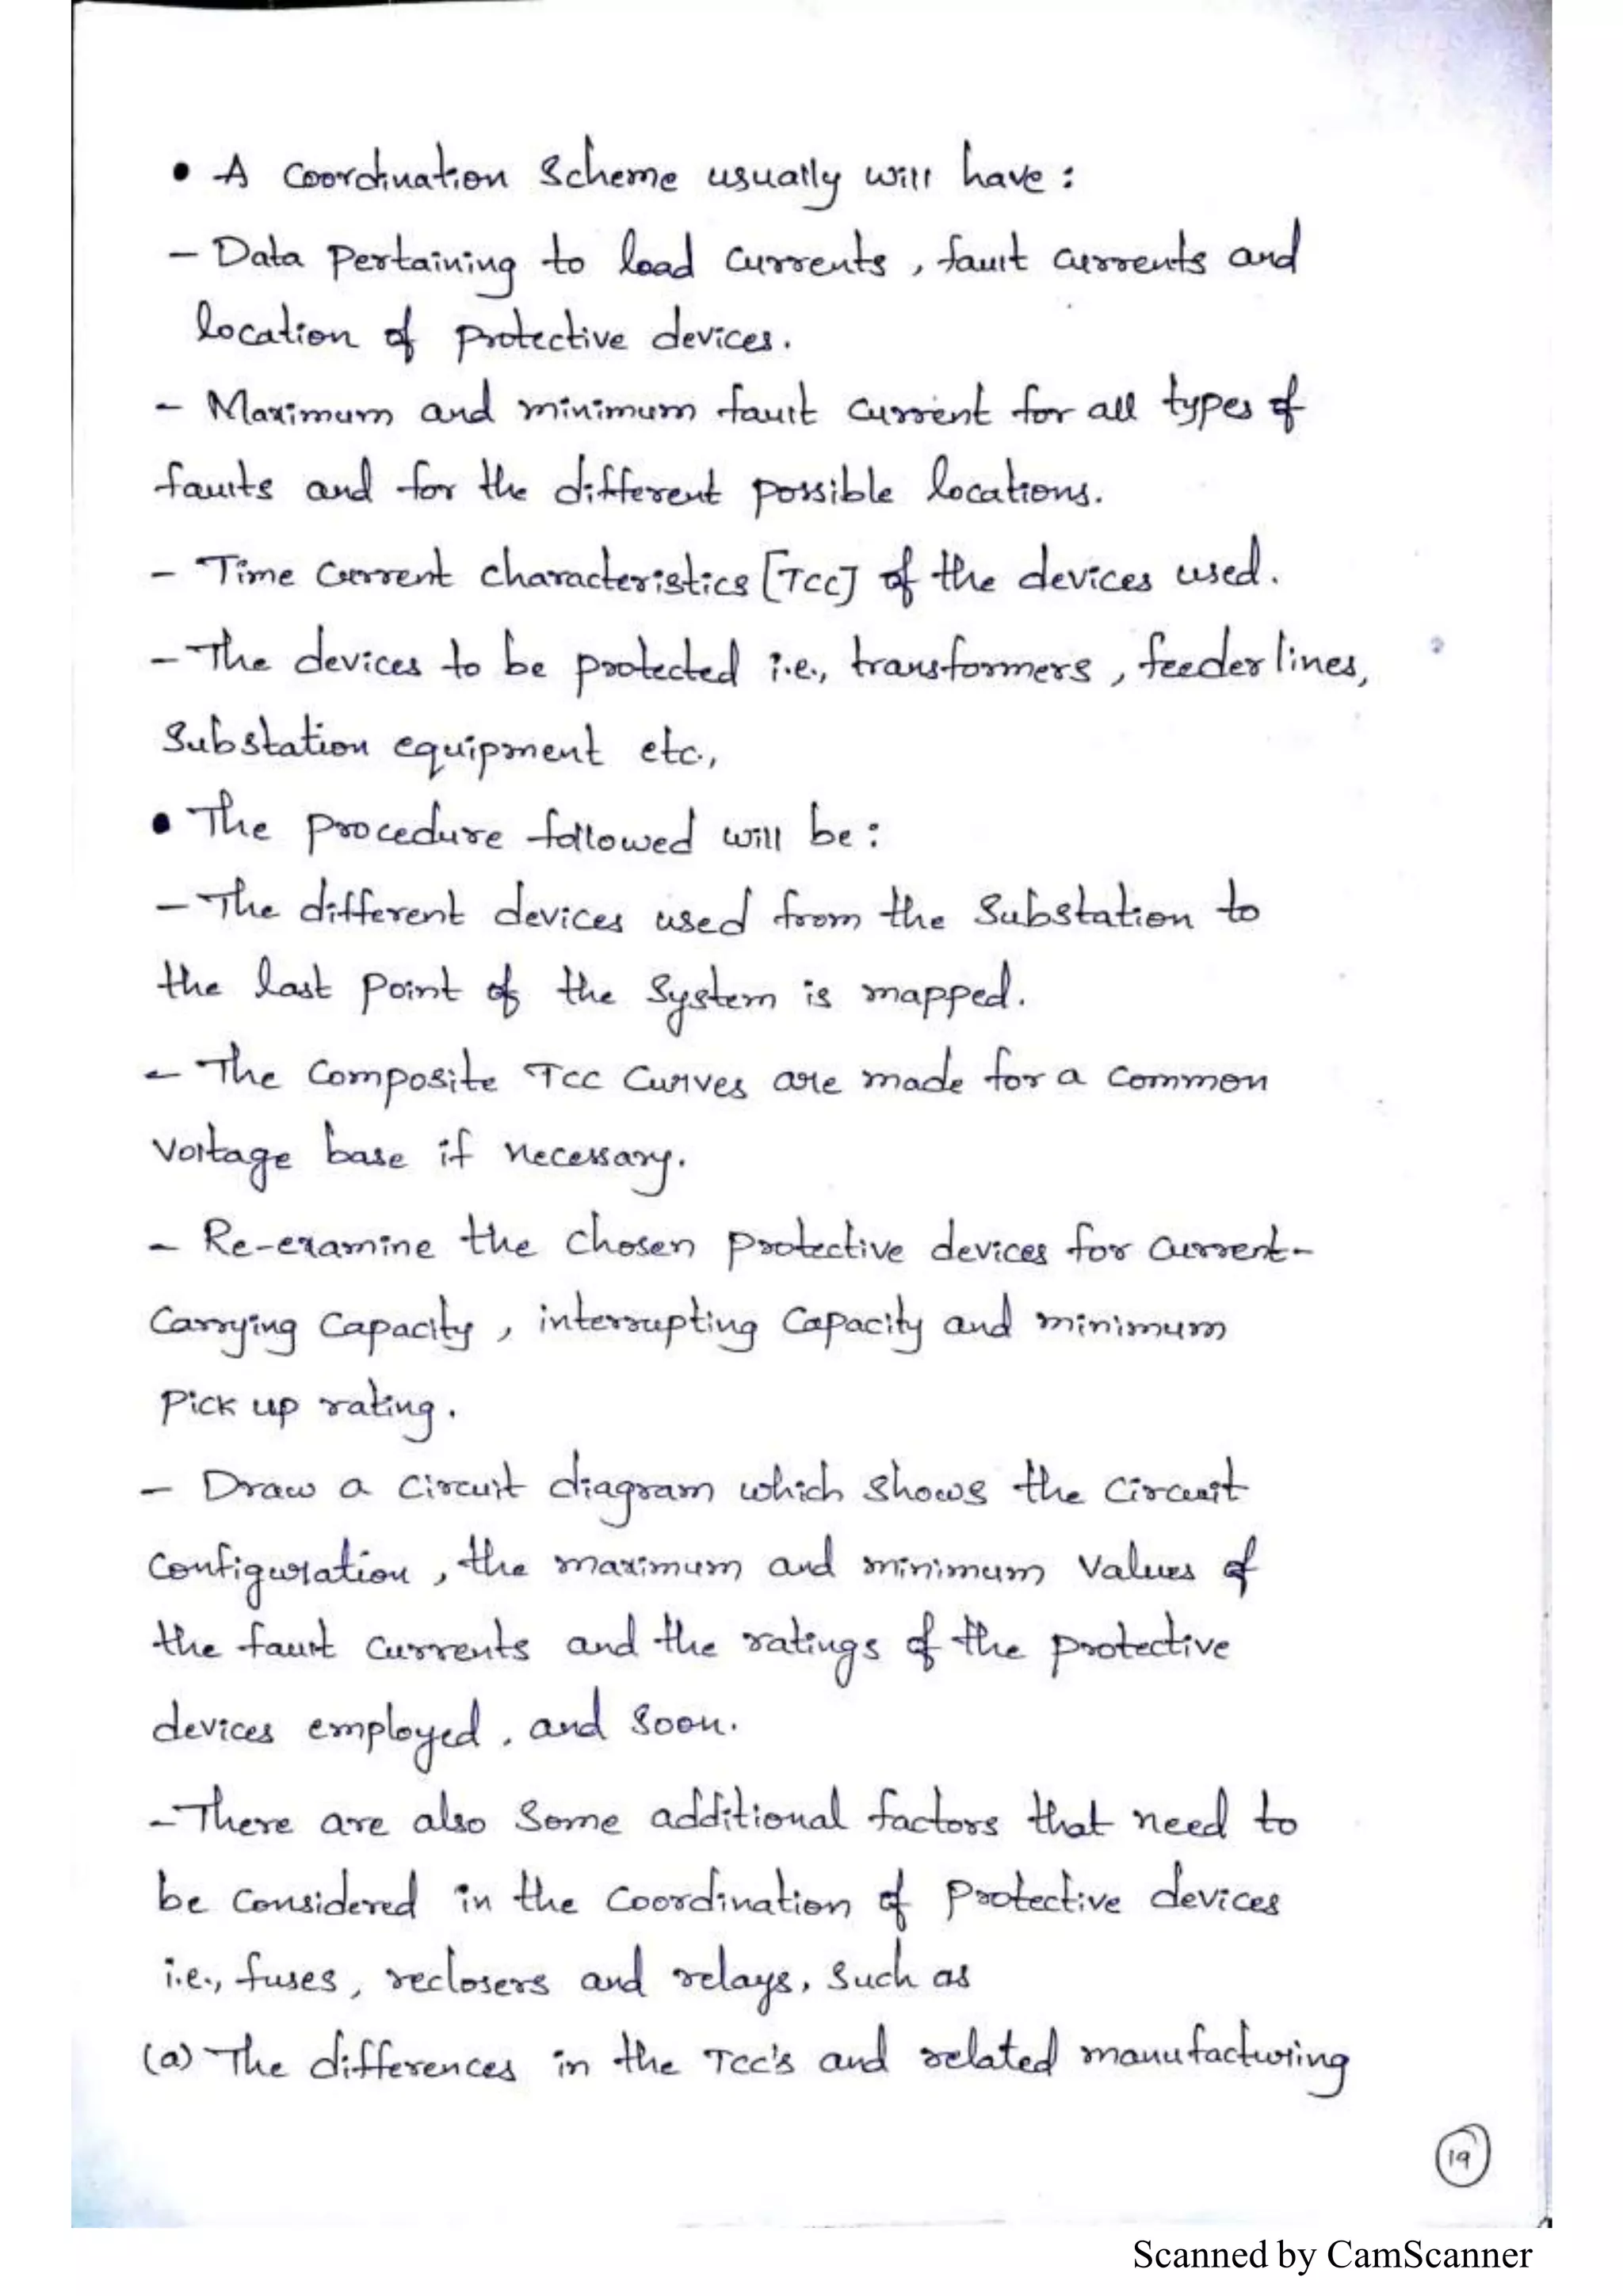 • A Coordination Scheme usually will have :
- Data Pertaining to load currents , fault currents and
location of protective devices.
- Maximum and minimum fault current for all types of
faults and for the different possible locations.
- Time current characteristics [TCC] of the devices used.
- The devices to be protected i.e., transformers , feeder lines,
Substation equipment etc.,
• The procedure followed will be :
- The different devices used from the Substation to
the last point of the System is mapped.
- The Composite TCC Curves are made for a common
Voltage base if necessary.
- Re-examine the chosen protective devices for current-
Carrying Capacity , interrupting Capacity and minimum
Pick up rating.
- Draw a circuit diagram which shows the circuit
Configuration , the maximum and minimum Values of
the fault currents and the ratings of the protective
devices employed , and soon.
- There are also Some additional factors that need to
be Considered in the Coordination of Protective devices
i.e., fuses , reclosers and relays, Such as
(a) The differences in the TCC's and related manufacturing
19
Scanned by CamScanner